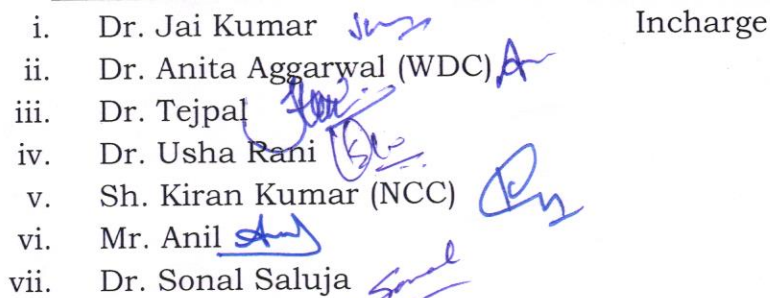 i. Dr. Jai Kumar Incharge
ii. Dr. Anita Aggarwal (WDC)
iii. Dr. Tejpal
iv. Dr. Usha Rani
v. Sh. Kiran Kumar (NCC)
vi. Mr. Anil
vii. Dr. Sonal Saluja Sonal